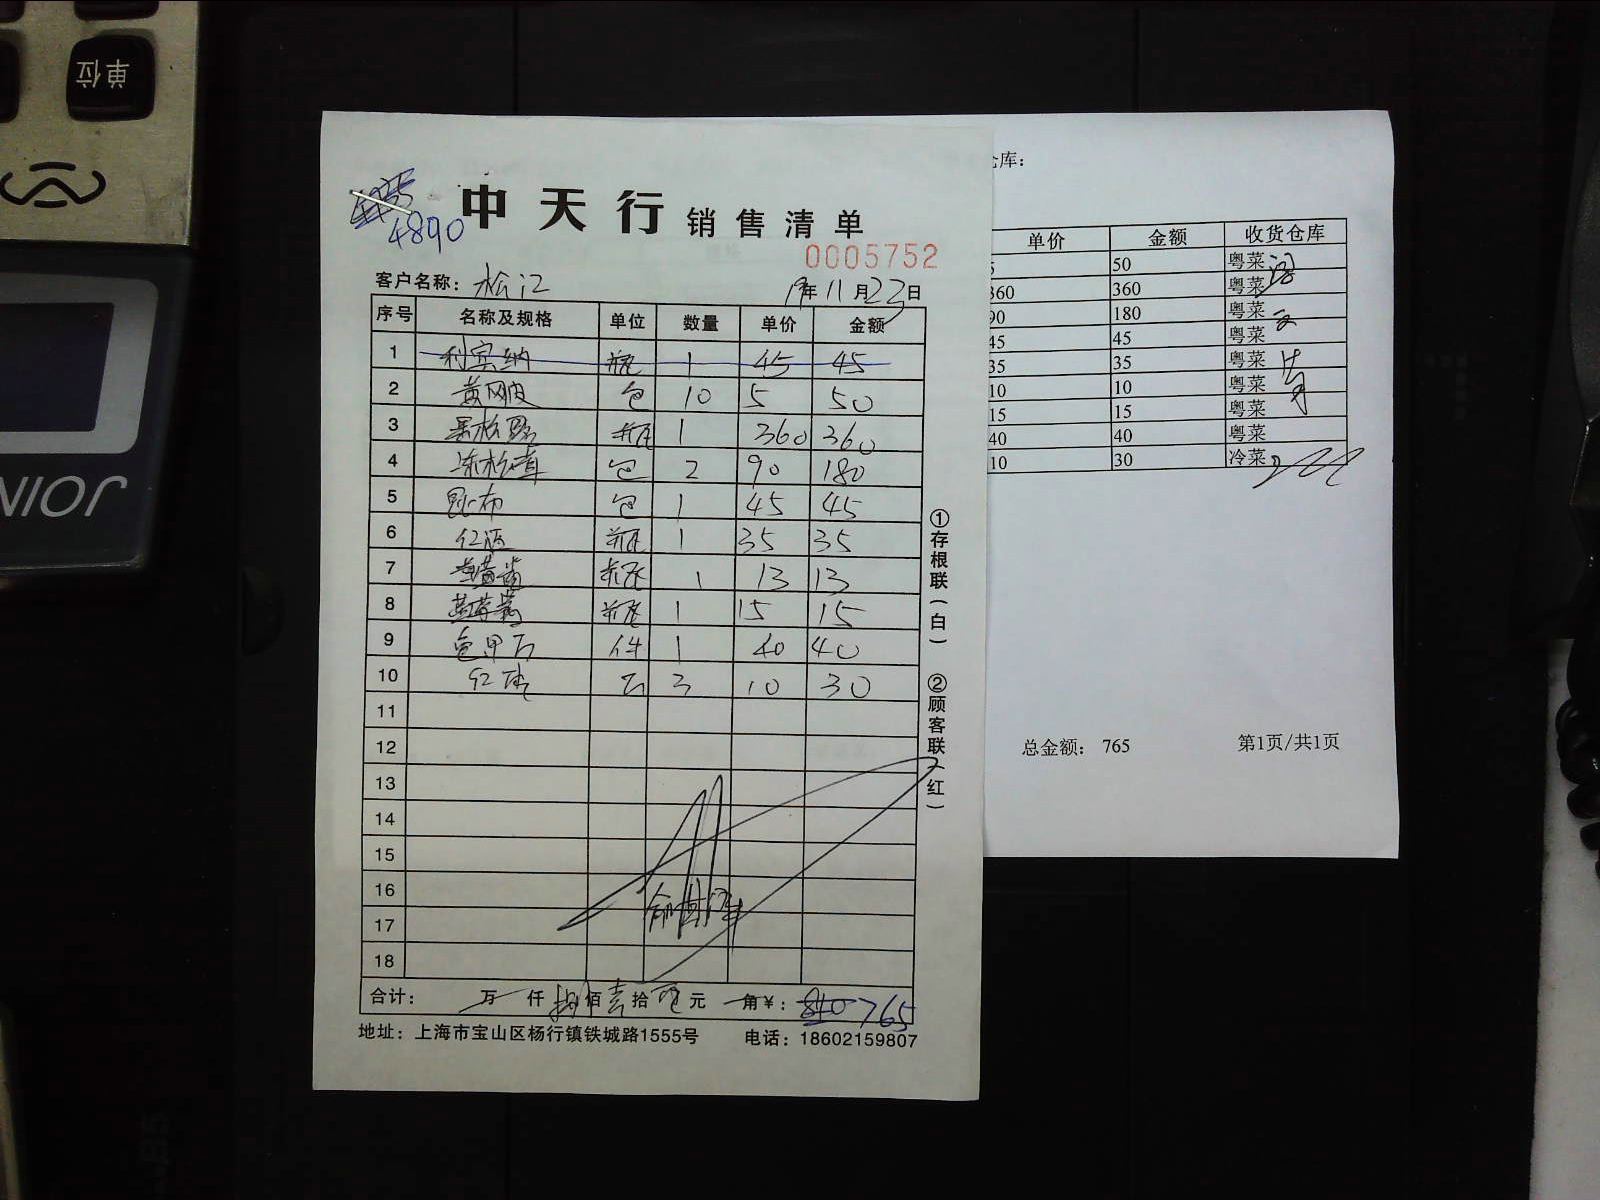 单位
4890
中天行 销售清单
0005752
客户名称： 松江 19年11月23日
序号 名称及规格 单位 数量 单价 金额
1 利宾纳 瓶 1 45 45
2 包 10 5 50
3 瓶 1 360 360
4 冻松茸 包 2 90 180
5 昆布 包 1 45 45
6 瓶 1 35 35
7 瓶 1 13 13
8 瓶 1 15 15
9 龟甲万 件 1 40 40
10 3 10 30
11
12
13
14
15
16
17
18
合计： 万 仟 捌佰壹拾 元 角¥： 810 765
地址：上海市宝山区杨行镇铁城路1555号 电话：18602159807
①存根联（白） ②顾客联（红）
库：
单价 金额 收货仓库
5 50 粤菜
360 360 粤菜
90 180 粤菜
45 45 粤菜
35 35 粤菜
10 10 粤菜
15 15 粤菜
40 40 粤菜
10 30 冷菜
总金额： 765 第1页/共1页